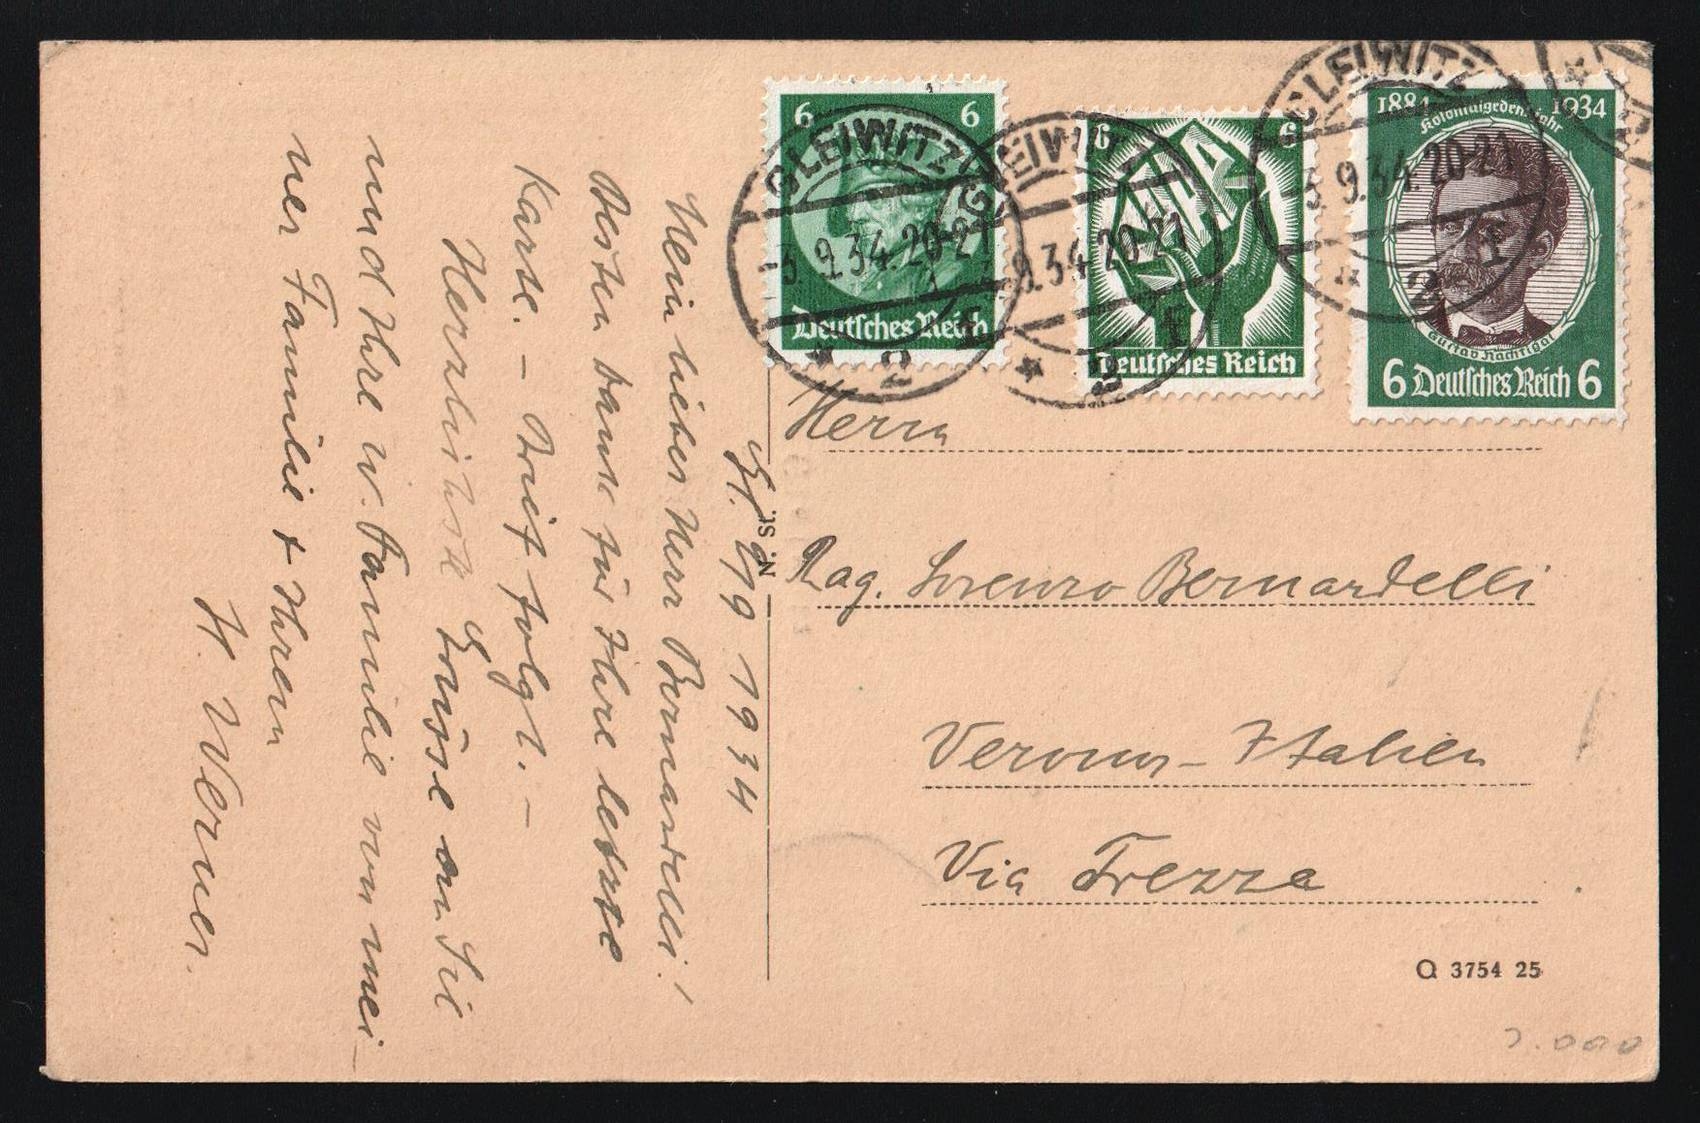 6 6
Deutsches Reich
GLEIWITZ
3.9.34.20-21
* 2
6 6
SAAR
Deutsches Reich
GLEIWITZ
9.34.20-21
* 2
1884 1934
Kolonialgedenkjahr
Gustav Nachtigal
6 Deutsches Reich 6
GLEIWITZ
3.9.34.20-21
* 2
Herrn
Rag. Lorenzo Bernardelli
Verona - Italien
Via Trezza
Q 3754 25
N. St.
1934
Mein lieber Herr Bernardelli!
Besten Dank für Ihre letzte
Karte. – Brief folgt. –
Herzlichste Grüsse an Sie
und Ihre w. Familie von mei-
ner Familie & Ihrem
H. Werner.
.000